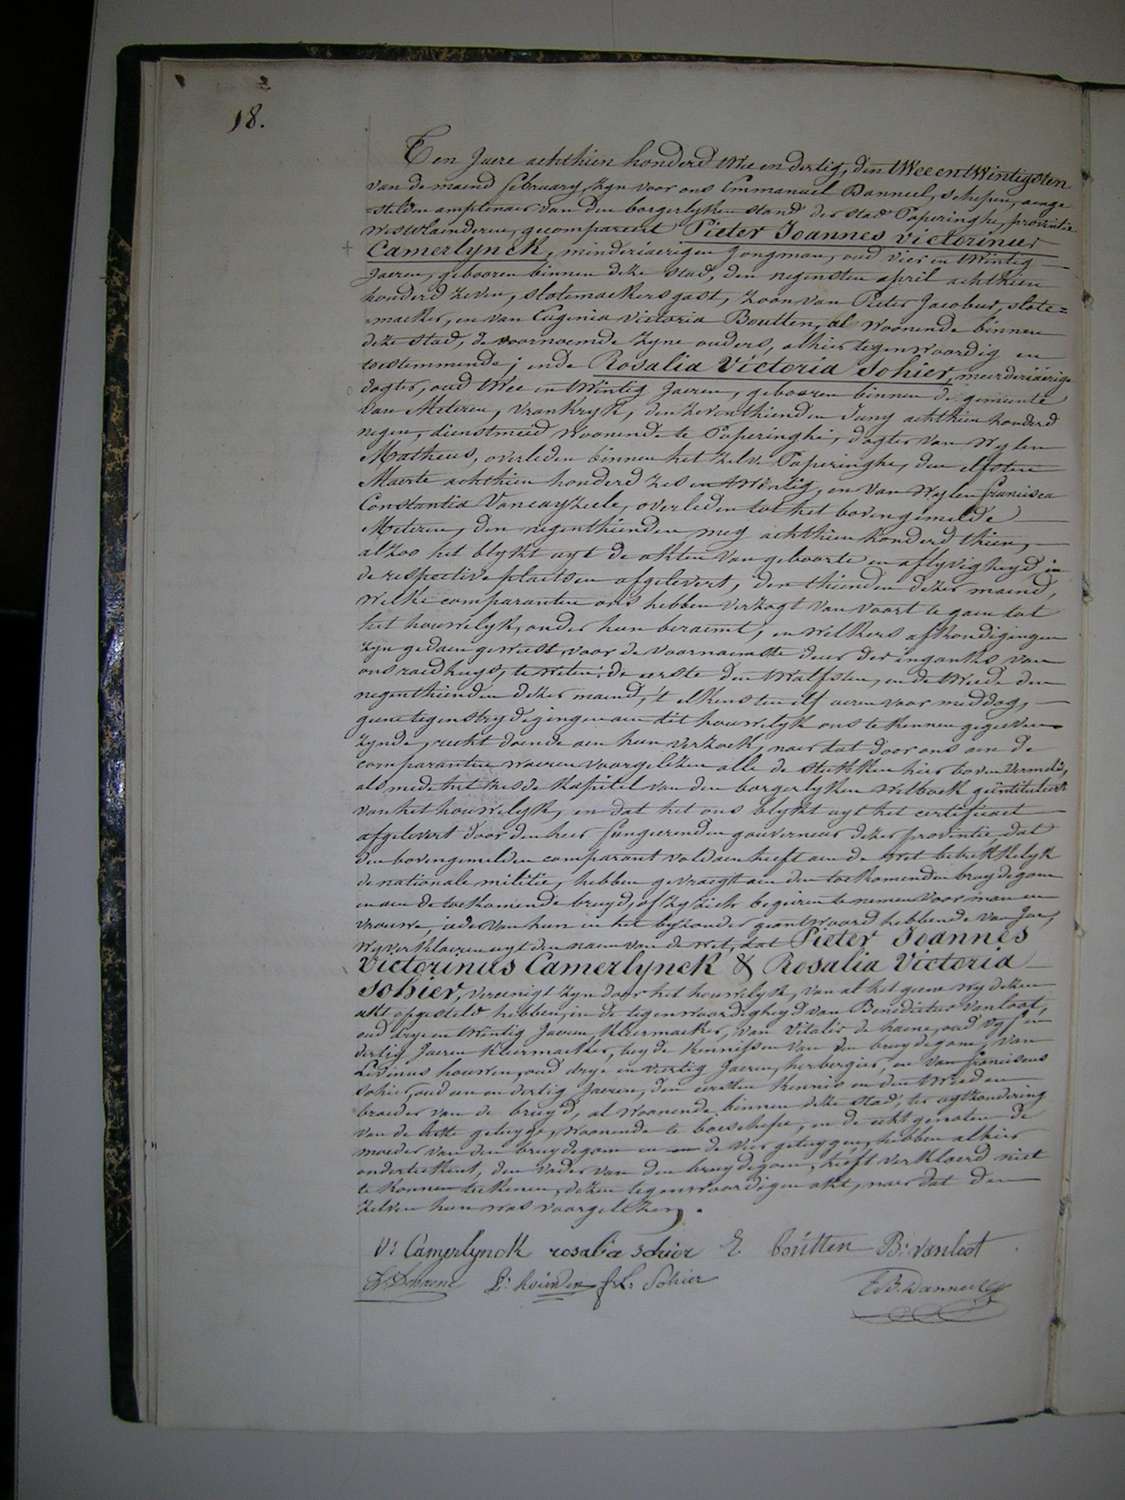 18.
Ten Jaere achthien honderd twee en dertig, den twee en twintigsten
van de maend february, zyn voor ons Emmanuel Danneel, schepen, aenge-
stelden amptenaer van den borgerlyken stand der stad Poperinghe, provintie
Westvlaenderen, gecompareert Pieter Joannes Victorinus
Camerlynck, minderjaerigen jongman, oud vier en twintig
Jaeren, gebooren binnen deze stad, den negensten april achthien
honderd zeven, slotemaekers gast, zoon van Pieter Jacobus, slote=
maeker, en van Eugenia Victoria Boutten, al woonende binnen
deze stad, de voornoemde zyne ouders, alhier tegenwoordig en
toestemmende; ende Rosalia Victoria Sohier, meerderjaerige
dogter, oud twee en twintig Jaeren, gebooren binnen de gemeente
van Meteren, Vrankryk, den zeventhienden Juny achthien honderd
negen, dienstmeid woonende te Poperinghe, dogter van wylen
Matheus, overleden binnen het zelve Poperinghe, den elfsten
Maerte achthien honderd zes en twintig, en van wylen francisca
Constantia Vancayzeele, overleden tot het bovengemelde
Meteren, den negenthienden mey achthien honderd thien,
alzoo het blykt uyt de akten van geboorte en aflyvigheyd in
de respective plaetsen afgelevert, den thienden dezer maend,
welke comparanten ons hebben verzogt van voort te gaen tot
het houwelyk, onder hun beraemt, en welkers afkondigingen
zyn gedaen geweest voor de voornaemste deur der ingank van
ons raedhuys, te weten: de eerste den twalfsten, en de tweede den
negenthienden dezer maend, 't elkens ten elf ueren voor middag,
geene tegenstrydigingen aen dit houwelyk ons te kennen gegeven
zynde, recht doende aen hun verzoek, naer dat door ons aen de
comparanten waeren voorgelezen alle de stukken hier boven vermeld,
als mede het zesde kapitel van den borgerlyken wetboek geintituleert
van het houwelyk, en dat het ons blykt uyt het certificaet
afgelevert door den heer fungeerenden gouverneur dezer provintie, dat
den bovengemelden comparant voldaen heeft aen de wet betrekkelyk
de nationale militie, hebben gevraegt aen den toekomenden bruydegom
en aen de toekomende bruyd, of zy zich begeeren te nemen voor man en
vrouwe, ieder van hun in het byzonder geantwoord hebbende van Jae,
wy verklaeren uyt den naem van de wet, dat Pieter Joannes
Victorinus Camerlynck & Rosalia Victoria
Sohier, vereenigt zyn door het houwelyk, van al het geene wy dezen
akt opgesteld hebben, in de tegenwoordigheyd van Benedictus Vanloot,
oud drye en twintig Jaeren, kleermaeker, van Vitalis de haene, oud vyf en
dertig Jaeren kleermaeker, beyde kennissen van den bruydegom, van
Livinus houwen, oud drye en veertig Jaeren, herbergier, en van franciscus
Sohier, oud een en dertig Jaeren, den eersten kennis en den tweeden
broeder van de bruyd, al woonende binnen deze stad, ter uytzondering
van de lesten getuyge, woonende te boeschepe, en de echtgenoten de
moeder van den bruydegom en de vier getuygen, hebben alhier
onderteekent, den vader van den bruydegom, heeft verklaerd niet
te konnen teekenen, dezen tegenwoordigen akt, naer dat den
zelven hun was voorgelezen.
V: Camerlynck rosalia sohier E. boutten B: vanloot
V. Dehaene L: houwen f. L. Sohier E B. Danneel